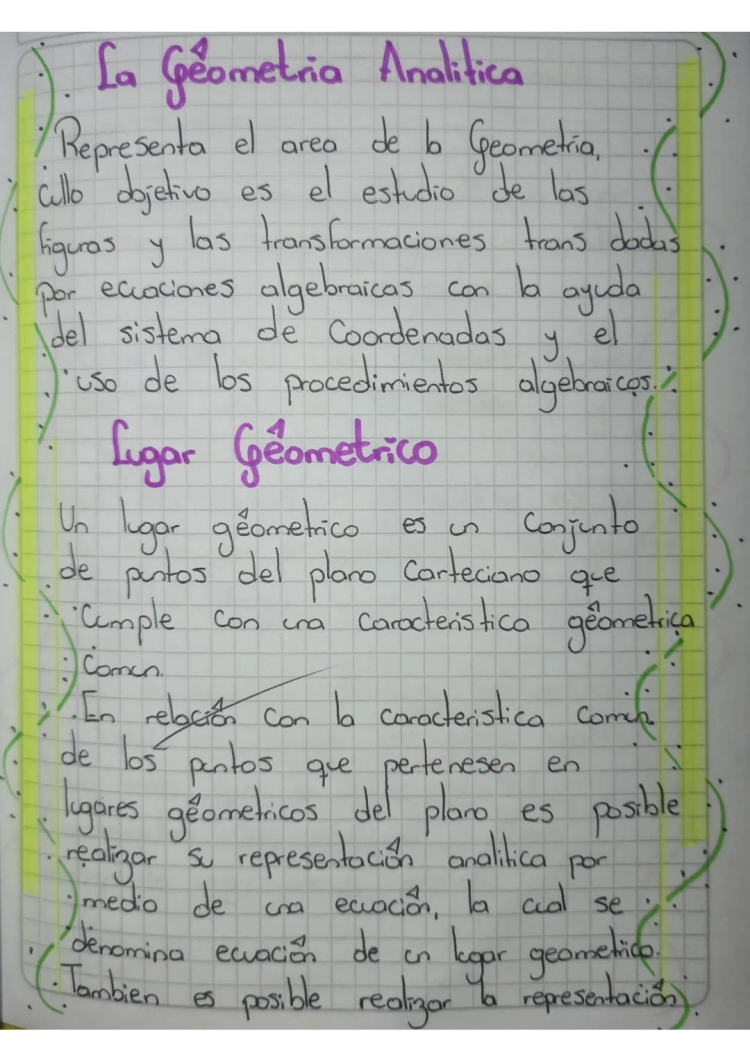 La Geometria Analitica
Representa el area de la Geometria,
cullo dojetivo es el estudio de las
figuras y las transformaciones trans dadas
por ecuaciones algebraicas con la ayuda
del sistema de Coordenadas y el
uso de los procedimientos algebraicos.
Lugar Geometrico
Un lugar geometrico es un Conjunto
de puntos del plano Carteciano que
Cumple con una Caracteristica geometrica
Comun.
En relación con la caracteristica Comun
de los puntos que pertenesen en
lugares geometricos del plano es posible
realizar su representación analitica por
medio de una ecuación, la cual se
denomina ecuación de un lugar geometrico.
Tambien es posible realizar la representación